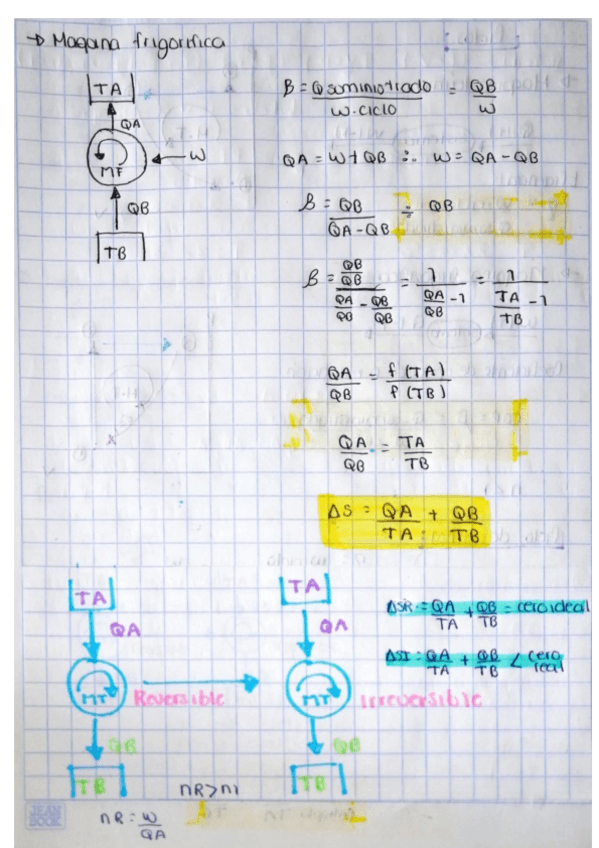 → Maquina frigorifica
TA
QA
MF
W
QB
TB
β = Q suministrado / W.ciclo = QB / W
QA = W + QB ∴ W = QA - QB
β = QB / QA - QB = QB
β = QB/QB / QA/QB - QB/QB = 1 / QA/QB - 1 = 1 / TA/TB - 1
QA / QB = f(TA) / f(TB)
QA / QB = TA / TB
ΔS = QA / TA + QB / TB
TA
QA
MT Reversible
QB
TB
TA
QA
MT Irreversible
QB
TB
ΔSR = QA / TA + QB / TB = cero ideal
ΔSI = QA / TA + QB / TB < cero real
nR>nI
nR = W / QA
JEAN BOOK